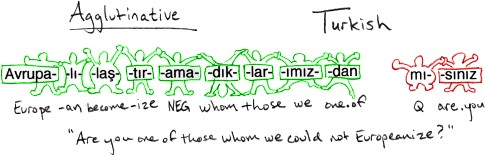 Agglutinative Turkish
Avrupa- -lı- -laş- -tır- -ama- -dık- -lar- -ımız- -dan mı- -sınız
Europe -an become -ize NEG whom those we one.of Q are.you
"Are you one of those whom we could not Europeanize?"